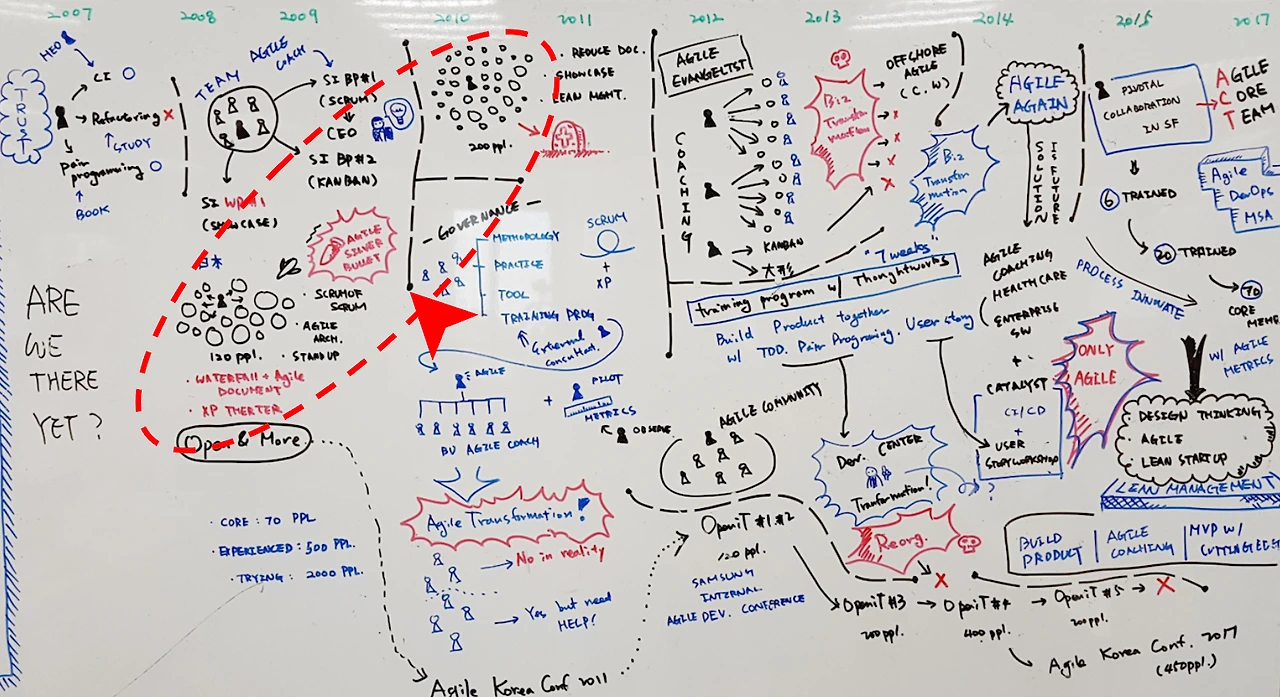 2007
2008
2009
2010
2011
2012
2013
2014
2015
2017
TRUST
MEO
CI
Refactoring X
STUDY
pair
programming
BOOK
ARE
WE
THERE
YET?
TEAM
AGILE
COACH
SI BP#1
(SCRUM)
CEO
SI BP#2
(KANBAN)
SI WP#1
(SHOWCASE)
AGILE
SILVER
BULLET
日本
120 ppl.
· SCRUM OF
SCRUM
· AGILE
ARCH.
· STAND UP
· WATERFALL + Agile
DOCUMENT
· XP THEATER
Open & More
· CORE : 70 PPL
· EXPERIENCED : 500 PPL.
· TRYING : 2000 PPL.
200 ppl.
· REDUCE DOC.
· SHOWCASE
· LEAN MGMT.
- GOVERNANCE -
METHODOLOGY
PRACTICE
TOOL
TRAINING PROG
SCRUM
+
XP
External
consultant.
AGILE
BU AGILE COACH
+
PILOT
METRICS
OBSERVE
Agile Transformation!
No in reality
Yes but need
HELP!
Agile Korea Conf 2011
AGILE
EVANGELIST
COACHING
KANBAN
Biz
Transfor
mation
X
X
X
X
OFFSHORE
AGILE
(C.W)
Biz
Transfor
mation
"7 weeks"
training program w/ Thoughtworks
Build Product together
w/ TDD. Pair Programing. User story
AGILE COMMUNITY
OpeniT #1 #2
120 ppl.
SAMSUNG
INTERNAL
AGILE DEV. CONFERENCE
Dev. CENTER
Tranformation!
?
Reorg.
X
OpeniT #3
200 ppl.
OpeniT #4
400 ppl.
OpeniT #5
200 ppl.
X
Agile Korea Conf. 2017
(450ppl.)
AGILE
AGAIN
SOLUTION
IS FUTURE
AGILE
COACHING
HEALTHCARE
ENTERPRISE
SW
+
CATALYST
CI/CD
+
USER
STORY WORKSHOP
ONLY
AGILE
PIVOTAL
COLLABORATION
IN SF
AGILE
CORE
TEAM
6 TRAINED
20 TRAINED
70
CORE MEMB
Agile
DevOps
MSA
PROCESS INNOVATE
W/ AGILE
METRICS
· DESIGN THINKING
· AGILE
· LEAN STARTUP
LEAN MANAGEMENT
BUILD
PRODUCT
AGILE
COACHING
MVP W/
CUTTINGEDG